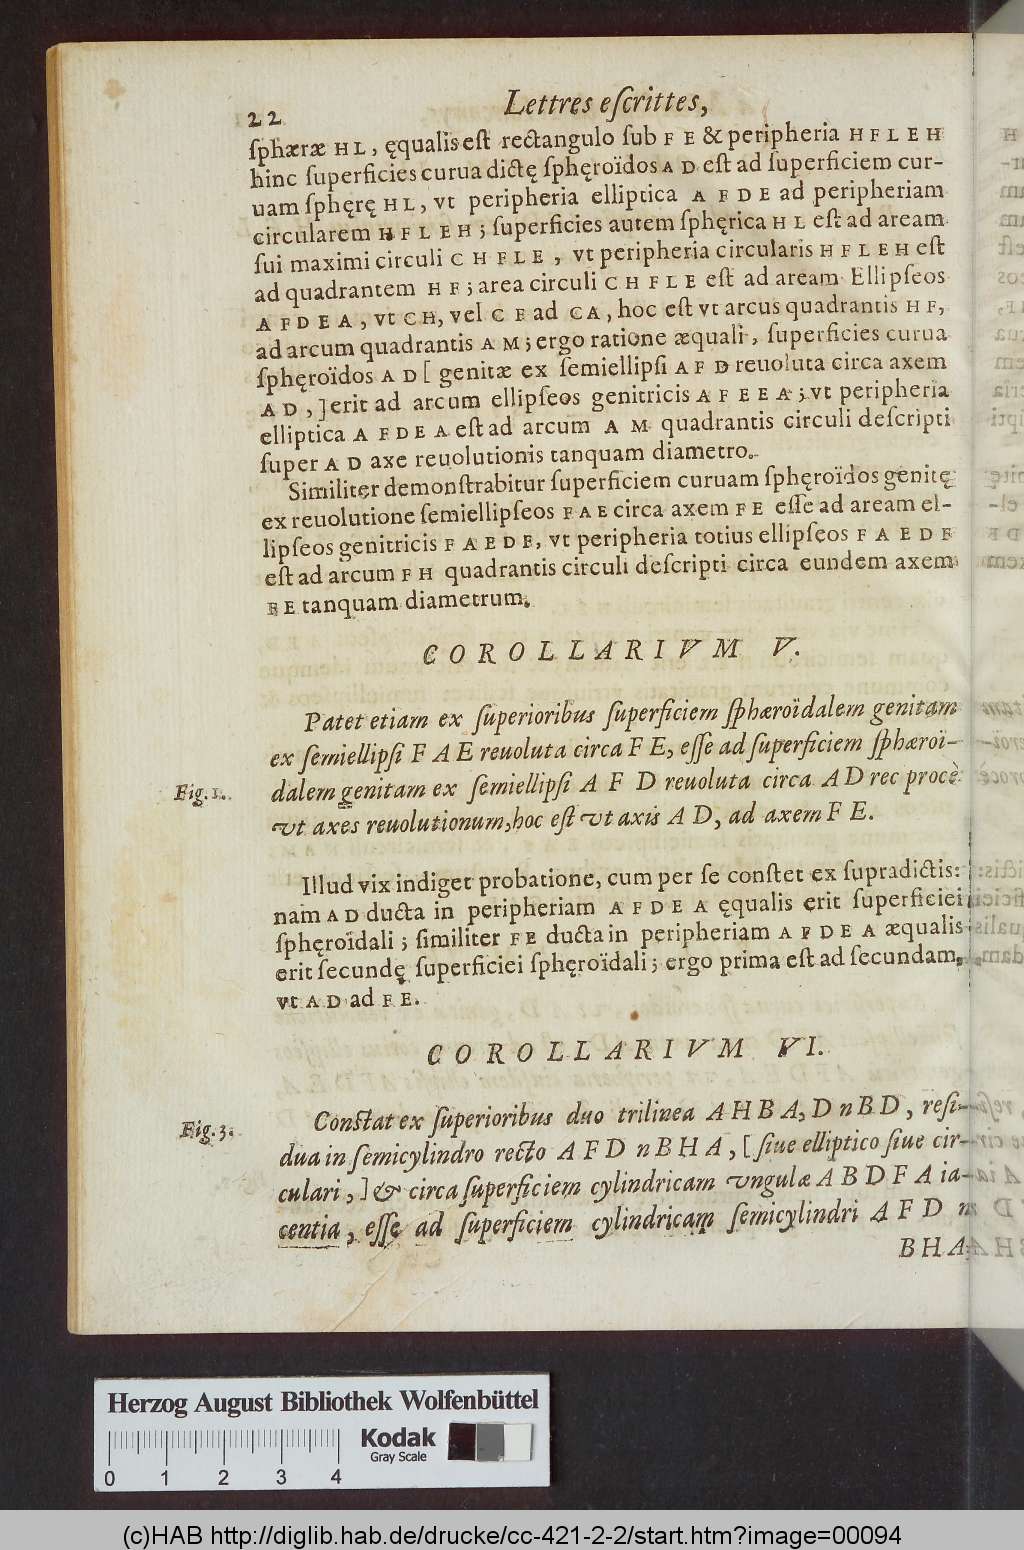 22
Lettres eſcrittes,
ſphæræ H L, ęqualis eſt rectangulo ſub F E & peripheria H F L E H
hinc ſuperficies curua dictę ſphęroïdos A D eſt ad ſuperficiem cur-
uam ſphęrę H L, vt peripheria elliptica A F D E ad peripheriam
circularem H F L E H; ſuperficies autem ſphęrica H L eſt ad aream
ſui maximi circuli C H F L E, vt peripheria circularis H F L E H eſt
ad quadrantem H F; area circuli C H F L E eſt ad aream Ellipſeos
A F D E A, vt C H, vel C F ad C A, hoc eſt vt arcus quadrantis H F,
ad arcum quadrantis A M; ergo ratione æquali, ſuperficies curua
ſphęroïdos A D [ genitæ ex ſemiellipſi A F D reuoluta circa axem
A D, ] erit ad arcum ellipſeos genitricis A F E E A; vt peripheria
elliptica A F D E A eſt ad arcum A M quadrantis circuli deſcripti
ſuper A D axe reuolutionis tanquam diametro.
Similiter demonſtrabitur ſuperficiem curuam ſphęroïdos genitę
ex reuolutione ſemiellipſeos F A E circa axem F E eſſe ad aream el-
lipſeos genitricis F A E D F, vt peripheria totius ellipſeos F A E D F
eſt ad arcum F H quadrantis circuli deſcripti circa eundem axem
F E tanquam diametrum.
COROLLARIVM V.
Patet etiam ex ſuperioribus ſuperficiem ſphæroïdalem genitam
ex ſemiellipſi F A E reuoluta circa F E, eſſe ad ſuperficiem ſphæroï-
Fig. 1. dalem genitam ex ſemiellipſi A F D reuoluta circa A D rec procè
vt axes reuolutionum, hoc eſt vt axis A D, ad axem F E.
Illud vix indiget probatione, cum per ſe conſtet ex ſupradictis:
nam A D ducta in peripheriam A F D E A ęqualis erit ſuperficiei
ſphęroïdali; ſimiliter F E ducta in peripheriam A F D E A æqualis
erit ſecundę ſuperficiei ſphęroïdali; ergo prima eſt ad ſecundam,
vt A D ad F E.
COROLLARIVM VI.
Fig. 3. Conſtat ex ſuperioribus duo trilinea A H B A, D n B D, reſi-
dua in ſemicylindro recto A F D n B H A, [ ſiue elliptico ſiue cir-
culari, ] & circa ſuperficiem cylindricam vngulæ A B D F A ia-
centia, eſſe ad ſuperficiem cylindricam ſemicylindri A F D n
B H A
Herzog August Bibliothek Wolfenbüttel
Kodak
Gray Scale
0 1 2 3 4
(c)HAB http://diglib.hab.de/drucke/cc-421-2-2/start.htm?image=00094